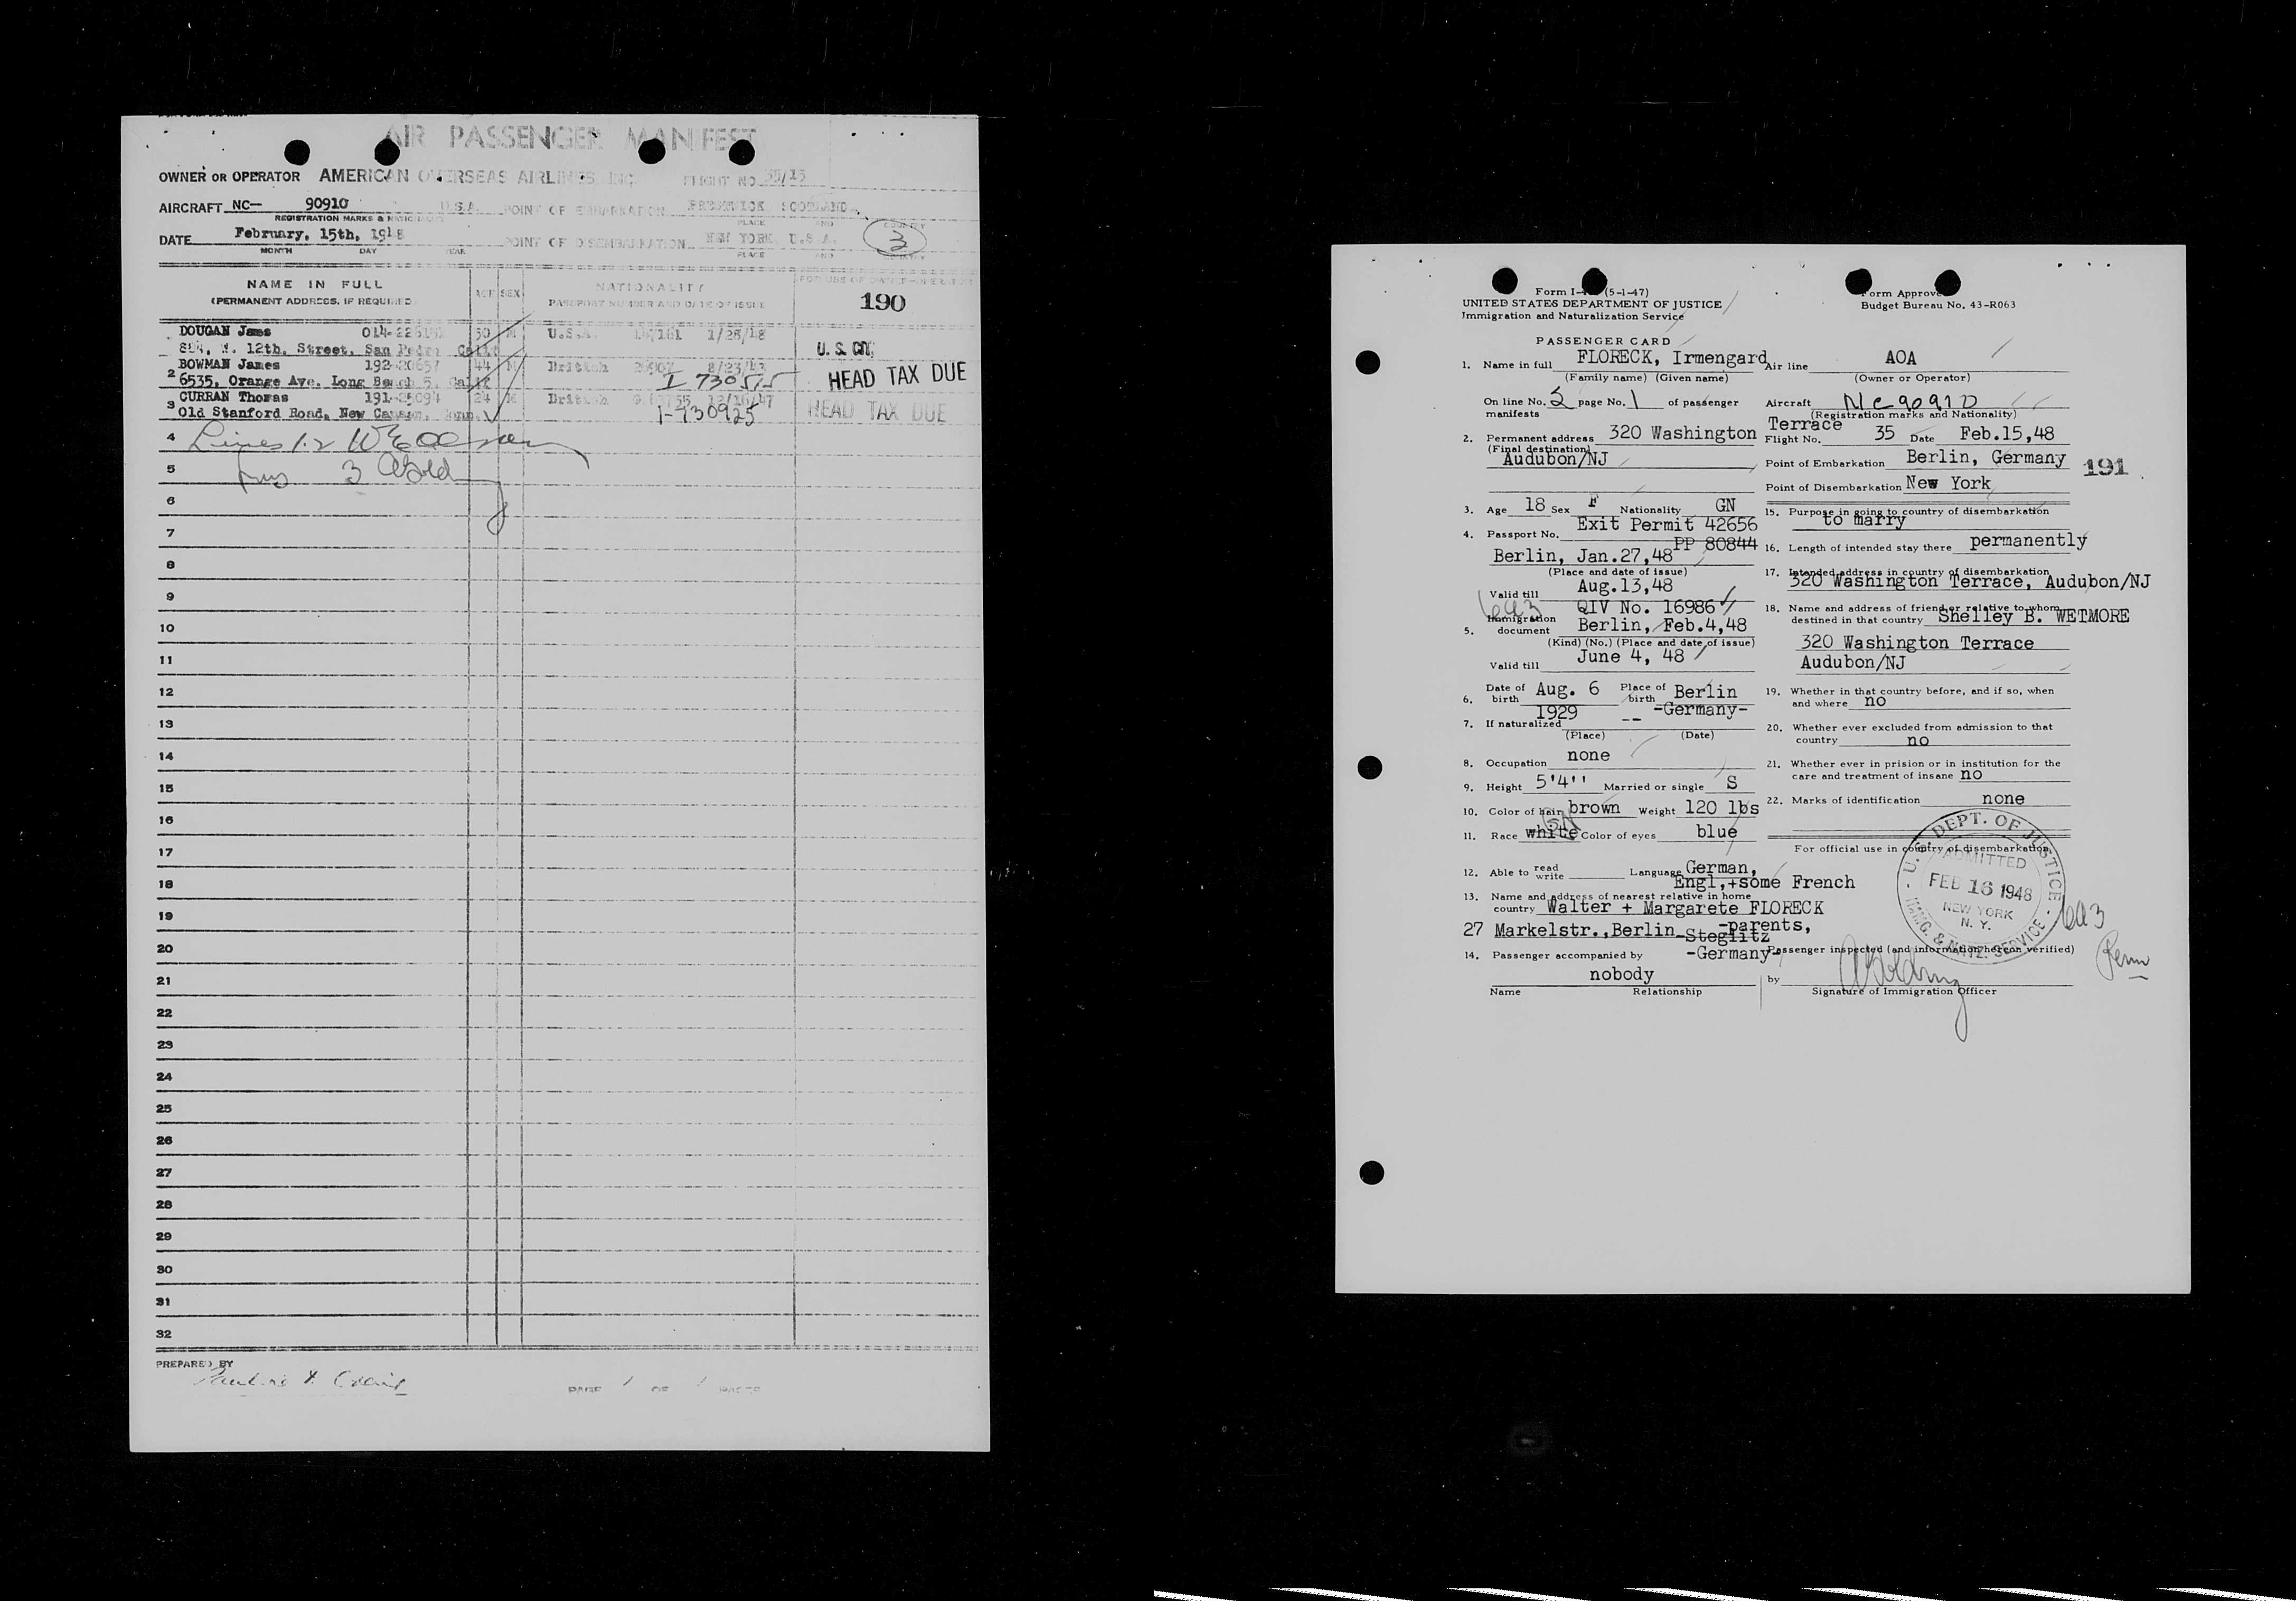 AIR PASSENGER MANIFEST
OWNER OR OPERATOR AMERICAN OVERSEAS AIRLINES INC. FLIGHT NO. 35/15
AIRCRAFT NC— 90910 U.S.A. POINT OF EMBARKATION PRESTWICK SCOTLAND
REGISTRATION MARKS & PLACE AND COUNTRY
DATE February, 15th, 1948 POINT OF DISEMBARKATION NEW YORK, U.S.A. 3
MONTH DAY YEAR PLACE AND COUNTRY
NAME IN FULL AGE SEX NATIONALITY FOR USE OF OWNER OR OPERATOR
(PERMANENT ADDRESS, IF REQUIRED) PASSPORT NUMBER AND DATE OF ISSUE 190
DOUGAN James 50 M U.S.A. 1/28/48
12th, Street, San Pedro Calif U. S. CIT,
BOWMAN James 192-20657 44 M British 8/23/43
2 6535, Orange Ave, Long Beach 5, Calif I 730515 HEAD TAX DUE
CURRAN Thomas 24 M British 12/16/47
3 Old Stanford Road, New Canaan, Conn. I-730925 HEAD TAX DUE
4 Lines 1.2
5 3
6
7
8
9
10
11
12
13
14
15
16
17
18
19
20
21
22
23
24
25
26
27
28
29
30
31
32
PREPARED BY
PAGE 1 OF 1 PAGES
Form I- (5-1-47) Form Approved
UNITED STATES DEPARTMENT OF JUSTICE Budget Bureau No. 43-R063
Immigration and Naturalization Service
PASSENGER CARD
1. Name in full FLORECK, Irmengard Air line AOA
(Family name) (Given name) (Owner or Operator)
On line No. 2 page No. 1 of passenger Aircraft NC90910
manifests (Registration marks and Nationality)
2. Permanent address 320 Washington Terrace Flight No. 35 Date Feb.15,48
(Final destination)
Audubon/NJ Point of Embarkation Berlin, Germany 191
Point of Disembarkation New York
3. Age 18 Sex F Nationality GN 15. Purpose in going to country of disembarkation
to marry
4. Passport No. Exit Permit 42656
PP 80844
Berlin, Jan.27,48 16. Length of intended stay there permanently
(Place and date of issue) 17. Intended address in country of disembarkation
Valid till Aug.13,48 320 Washington Terrace, Audubon/NJ
QIV No. 16986 18. Name and address of friend or relative to whom
5. Immigration document Berlin, Feb.4,48 destined in that country Shelley B. WETMORE
(Kind) (No.) (Place and date of issue) 320 Washington Terrace
Valid till June 4, 48 Audubon/NJ
6. Date of birth Aug. 6 Place of birth Berlin 19. Whether in that country before, and if so, when
1929 -Germany- and where no
7. If naturalized -- 20. Whether ever excluded from admission to that
(Place) (Date) country no
8. Occupation none 21. Whether ever in prision or in institution for the
9. Height 5'4'' Married or single S care and treatment of insane no
10. Color of hair brown Weight 120 lbs 22. Marks of identification none
11. Race white Color of eyes blue
For official use in country of disembarkation
12. Able to read write Language German,
Engl,+some French
13. Name and address of nearest relative in home
country Walter + Margarete FLORECK
27 Markelstr.,Berlin-Steglitz -parents,
-Germany-
U. S. DEPT. OF JUSTICE
ADMITTED
FEB 16 1948
NEW YORK
N. Y.
IMMG. & NATZ. SERVICE
14. Passenger accompanied by Passenger inspected (and information hereon verified)
nobody by
Name Relationship Signature of Immigration Officer